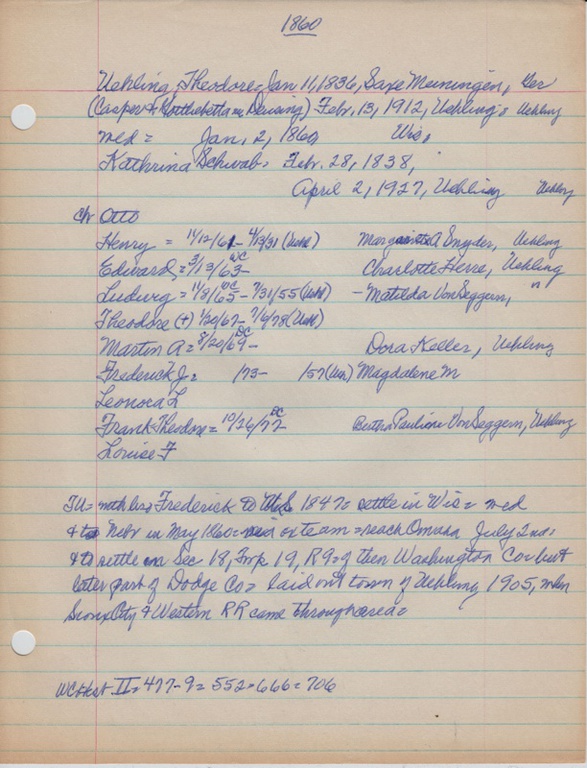 1860
Uehling, Theodore = Jan 11, 1836, Saxe Meiningen, Ger
(Casper & ) Febr. 13, 1912, Uehling = Uehling
med = Jan. 2, 1860, Wis.
Kathrina Schwab = Febr. 28, 1838,
April 2, 1927, Uehling Uehling
ch Otto
Henry = 11/12/61 - 4/13/31 (Uehl) Snyder, Uehling
Edward = 3/13/63 - WC Charlotte Herre, Uehling
Ludwig = 11/8/65 - 7/31/55 (Uehl) - Matilda VonSeggern, "
Theodore (+) 1/20/67 - 7/6/78 (Uehl)
Martin A = 8/20/69 - DC Dora Keller, Uehling
Frederick J = /73 - /57 (Ueh) Magdalene M
Leonora L
Frank Theodore = 10/26/77 DC Pauline VonSeggern, Uehling
Louise F
TU = with bro Frederick to 1847 = settle in Wis = med
& to Nebr in May 1860 = ox team = reach Omaha July 2nd =
& to settle on Sec 18, Twp 19, R9 = of then Washington Co = but
later part of Dodge Co = laid out town of Uehling 1905, when
Sioux City & Western RR came through area =
WC Hist II = 477-9 = 552 = 666 = 706